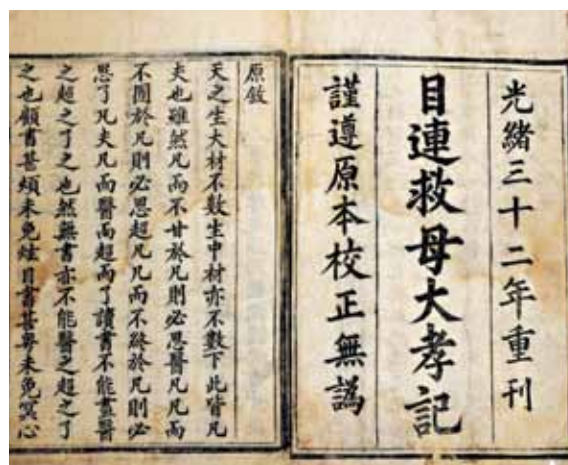 光緒三十二年重刊
目連救母大孝記
謹遵原本校正無譌
原敘
天之生大材不數生中材亦不數下此皆凡
夫也雖然凡而不甘於凡則必思醫凡凡而
不囿於凡則必思超凡凡而不終於凡則必
思了凡夫凡而醫而超而了讀書不能盡醫
之超之了之也然無書亦不能醫之超之了
之也顧書甚煩未免眩目書甚奧未免冥心